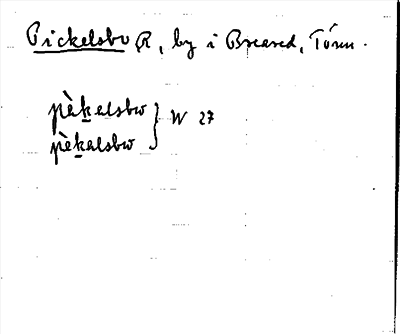 Pickelsbo R, by i Breared, Tönn.
pèkelsbω } W 27
pèkalsbω